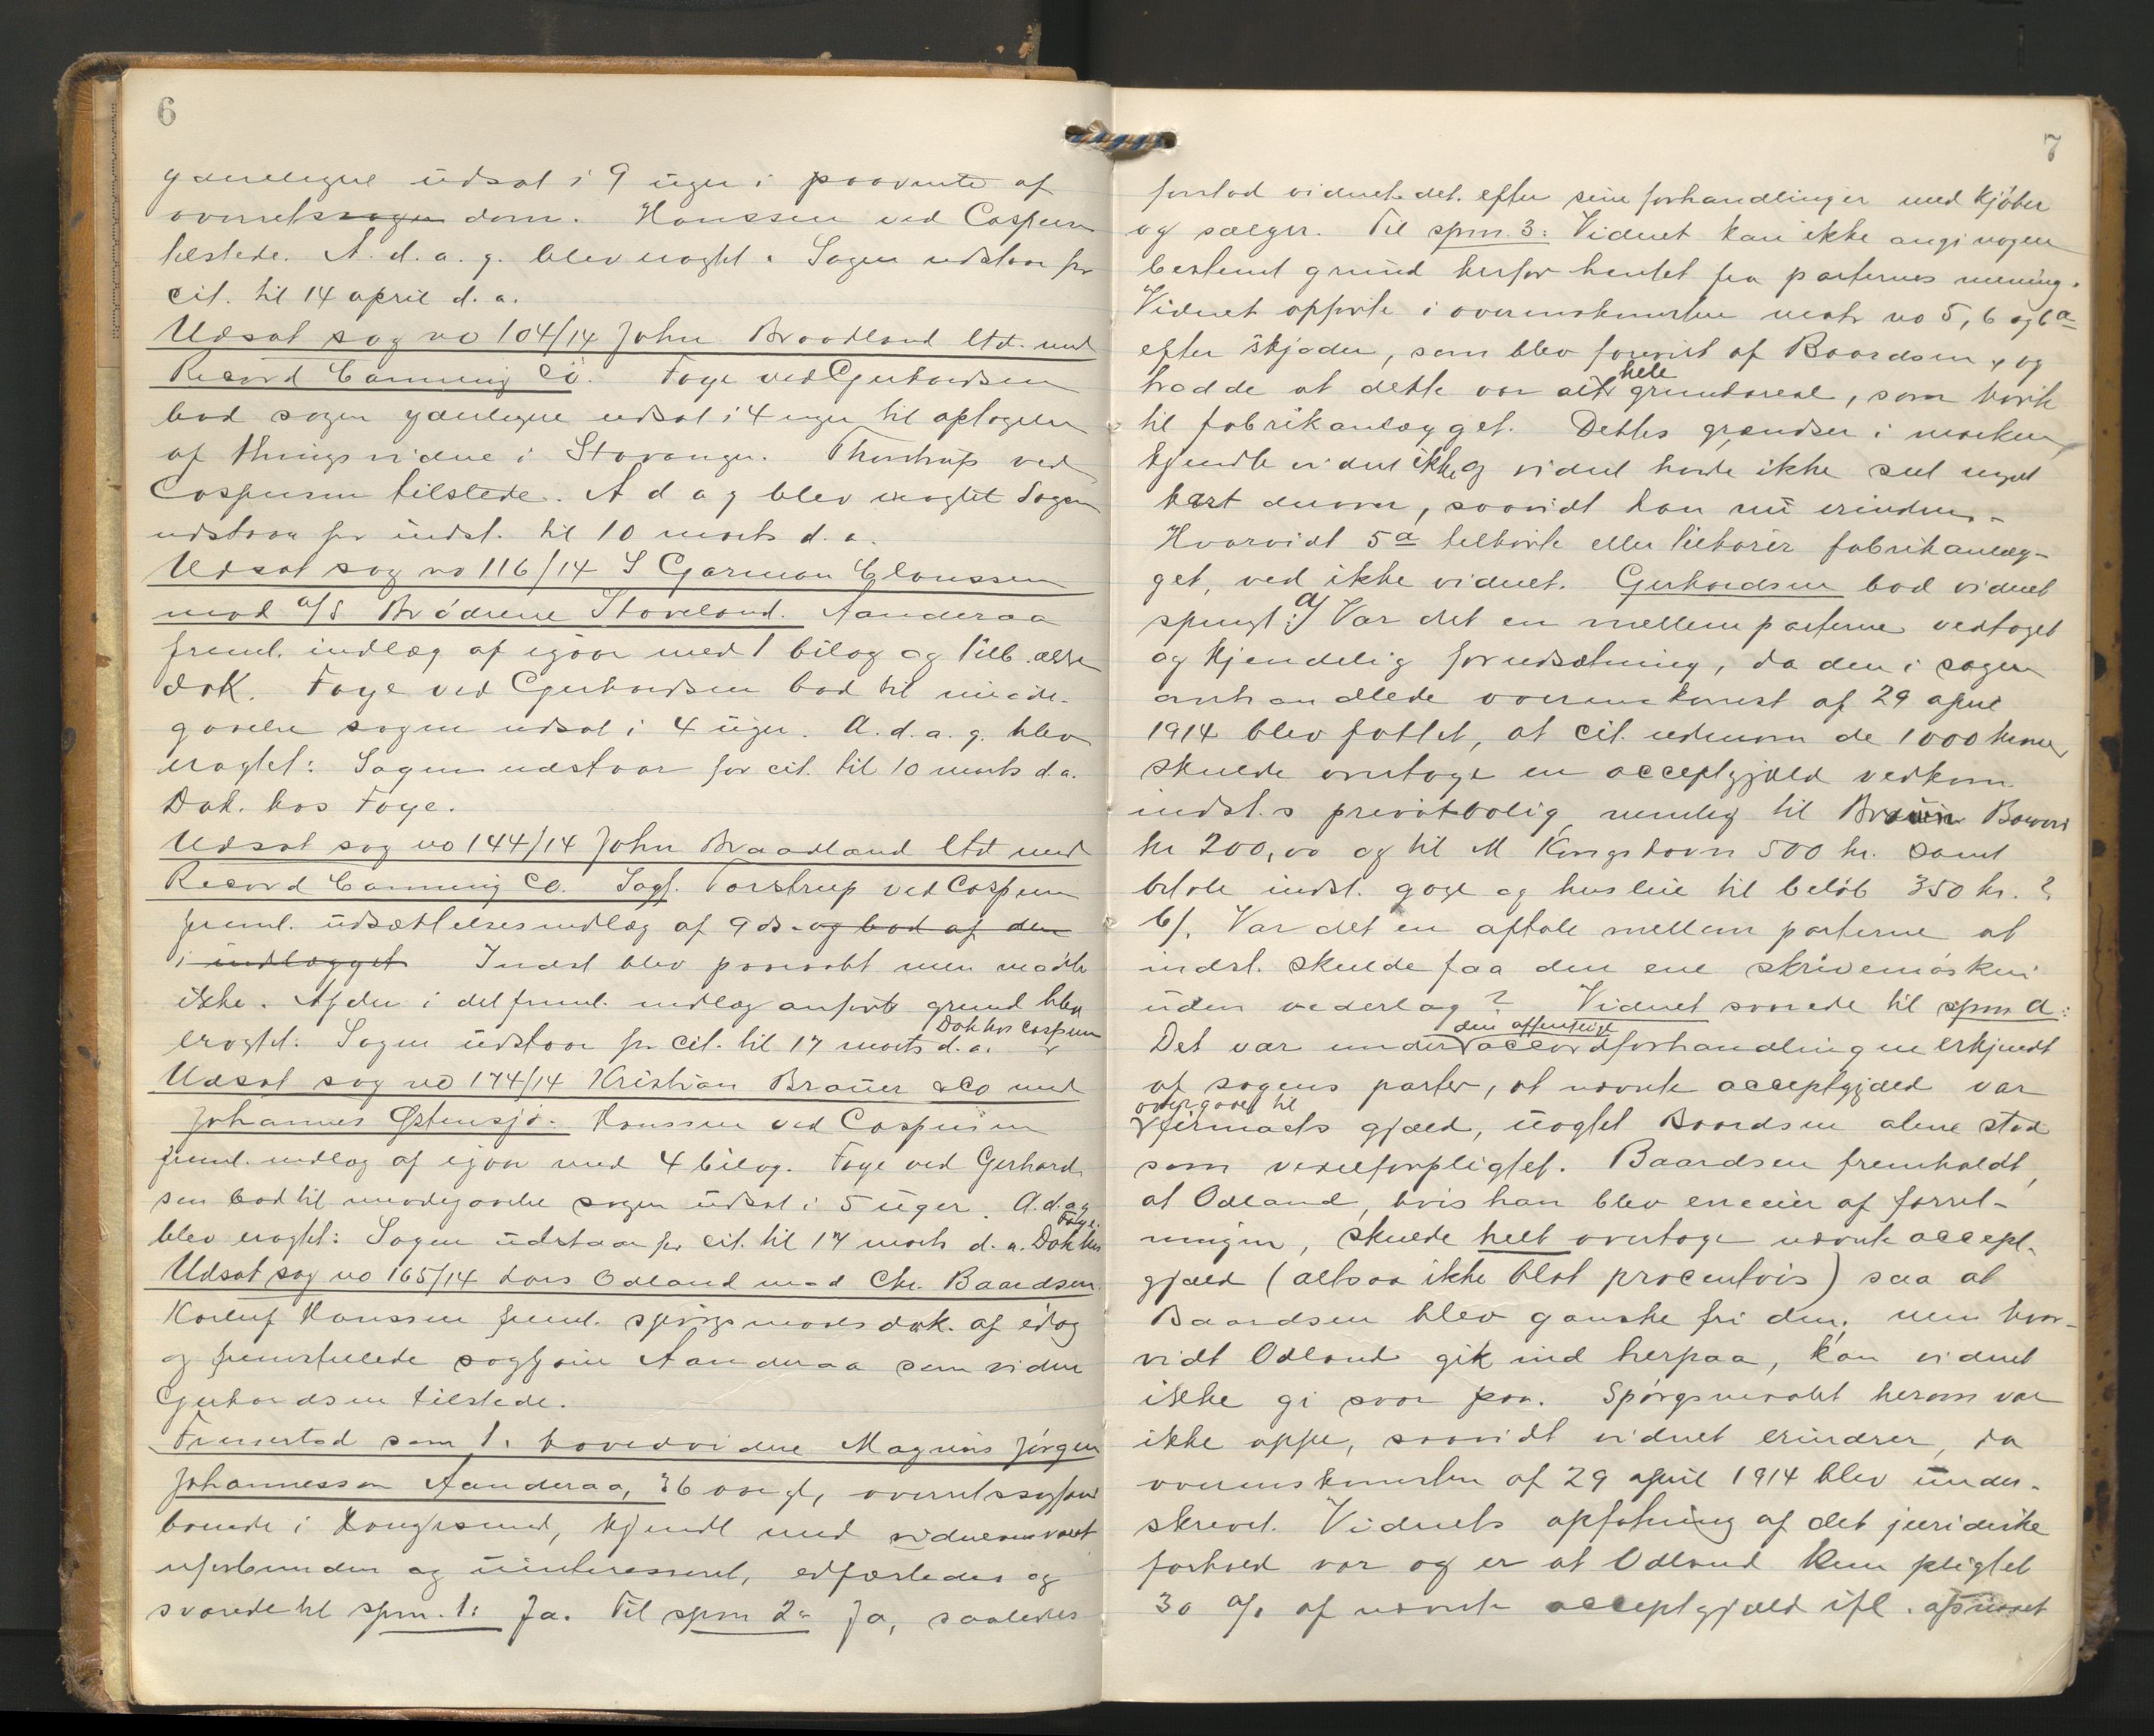 6
yderligere udsat i 9 uger i paavente af
overretssagen dom. Hanssen ved Caspersen
tilstede. A. d. a. g. blev eragtet: Sagen udstaar for
cit. til 14 april d. a.
Udsat sag no 104/14 John Braadland ltd. mod
Record Canning Co. Foye ved Gerhardsen
bad sagen yderligere udsat i 4 uger til optagelse
af thingsvidne i Stavanger. Thorstrup ved
Caspersen tilstede. A d a g blev eragtet Sagen
udstaar for indst. til 10 marts d. a.
Udsat sag no 116/14 S Garman Clausen
mod a/s Brødrene Stoveland. Aanderaa
freml. indlæg af igaar med 1 bilag og tilb. ældre
dok. Foye ved Gerhardsen bad til imøde-
gaaelse sagen udsat i 4 uger. A. d. a. g. blev
eragtet: Sagen udstaar for cit. til 10 marts d.a.
Dok. hos Foye.
Udsat sag no 144/14 John Braadland ltd mod
Record Canning Co. Sagf. Torstrup ved Caspersen
freml. udsættelsesindlæg af 9 ds. og bad af den
i indlægget Indst blev paaraabt men mødte
ikke. Af den i det freml. indlæg anførte grund blev
eragtet: Sagen udstaar for cit. til 17 marts d. a. Dok hos Caspersen
Udsat sag no 174/14 Kristian Brauer & Co mod
Johannes Østensjø. Hanssen ved Caspersen
freml. indlæg af igaar med 4 bilag. Foye ved Gerhard-
sen bad til imødegaaelse sagen udsat i 5 uger. A. d. a g
blev eragtet: Sagen udstaar for cit. til 17 marts d. a. Dok hos Foye.
Udsat sag no 165/14 Lars Odland mod Chr. Baardsen.
Karluf Hanssen freml. spørgsmaalsdok. af idag
og fremstillede sagfører Aanderaa som vidne
Gerhardsen tilstede.
Fremstod som 1. hovedvidne Magnus Jørgen
Johannessen Aanderaa, 36 aar gl, overretssagfører
boende i Haugesund, kjendt med vidneansvaret
uforbunden og uinteresseret, edfæstedes og
svarede til spm. 1: Ja. Til spm 2: Ja, saaledes
7
forstod vidnet det efter sine forhandlinger med kjøber
og sælger. Til spm. 3: Vidnet kan ikke angi nogen
bestemt grund herfor hentet fra parternes mening.
Vidnet opførte i overenskomsten matr no 5, 6 og 6a
efter skjøder, som blev forevist af Baardsen, og
trodde at dette var alt hele grundareal, som hørte
til fabrikanlægget. Dettes grændser i marken
kjendte vidnet ikke og vidnet havde ikke set noget
kart derover, saavidt han nu erindrer.
Hvorvidt 5a tilhørte eller tilhører fabrikanlæg-
get, ved ikke vidnet. Gerhardsen bad vidnet
spurgt: a/ Var det en mellem parterne vedtaget
og kjendelig forudsætning, da den i sagen
omhandlede overenskomst af 29 april
1914 blev fattet, at cit. udenom de 1000 kroner
skulde overtage en acceptgjæld vedkom.
indst.s privatbolig, nemlig til Brown Boveri
kr 200,00 og til M Kongshavn 500 kr. samt
betale indst. gage og husleie til beløb 350 kr.?
b/. Var det en aftale mellem parterne at
indst. skulde faa den ene skrivemaskin
uden vederlag? Vidnet svarede til spm a:
Det var under den offentlige accordforhandlingene erkjendt
af sagens parter, at nævnte acceptgjæld var
overgaaet til firmaets gjæld, uagtet Baardsen alene stod
som vexelforpligtet. Baardsen fremholdt,
at Odland, hvis han blev eneeier af forret-
ningen, skulde helt overtage nævnte accept-
gjæld (altsaa ikke blot procentvis) saa at
Baardsen blev ganske fri den, men hvor-
vidt Odland gik ind herpaa, kan vidnet
ikke gi svar paa. Spørgsmaalet herom var
ikke oppe, saavidt vidnet erindrer, da
overenskomsten af 29 april 1914 blev under-
skrevet. Vidnets opfatning af det juridiske
forhold var og er at Odland kun pligtet
30 % af nævnte acceptgjæld ifl.